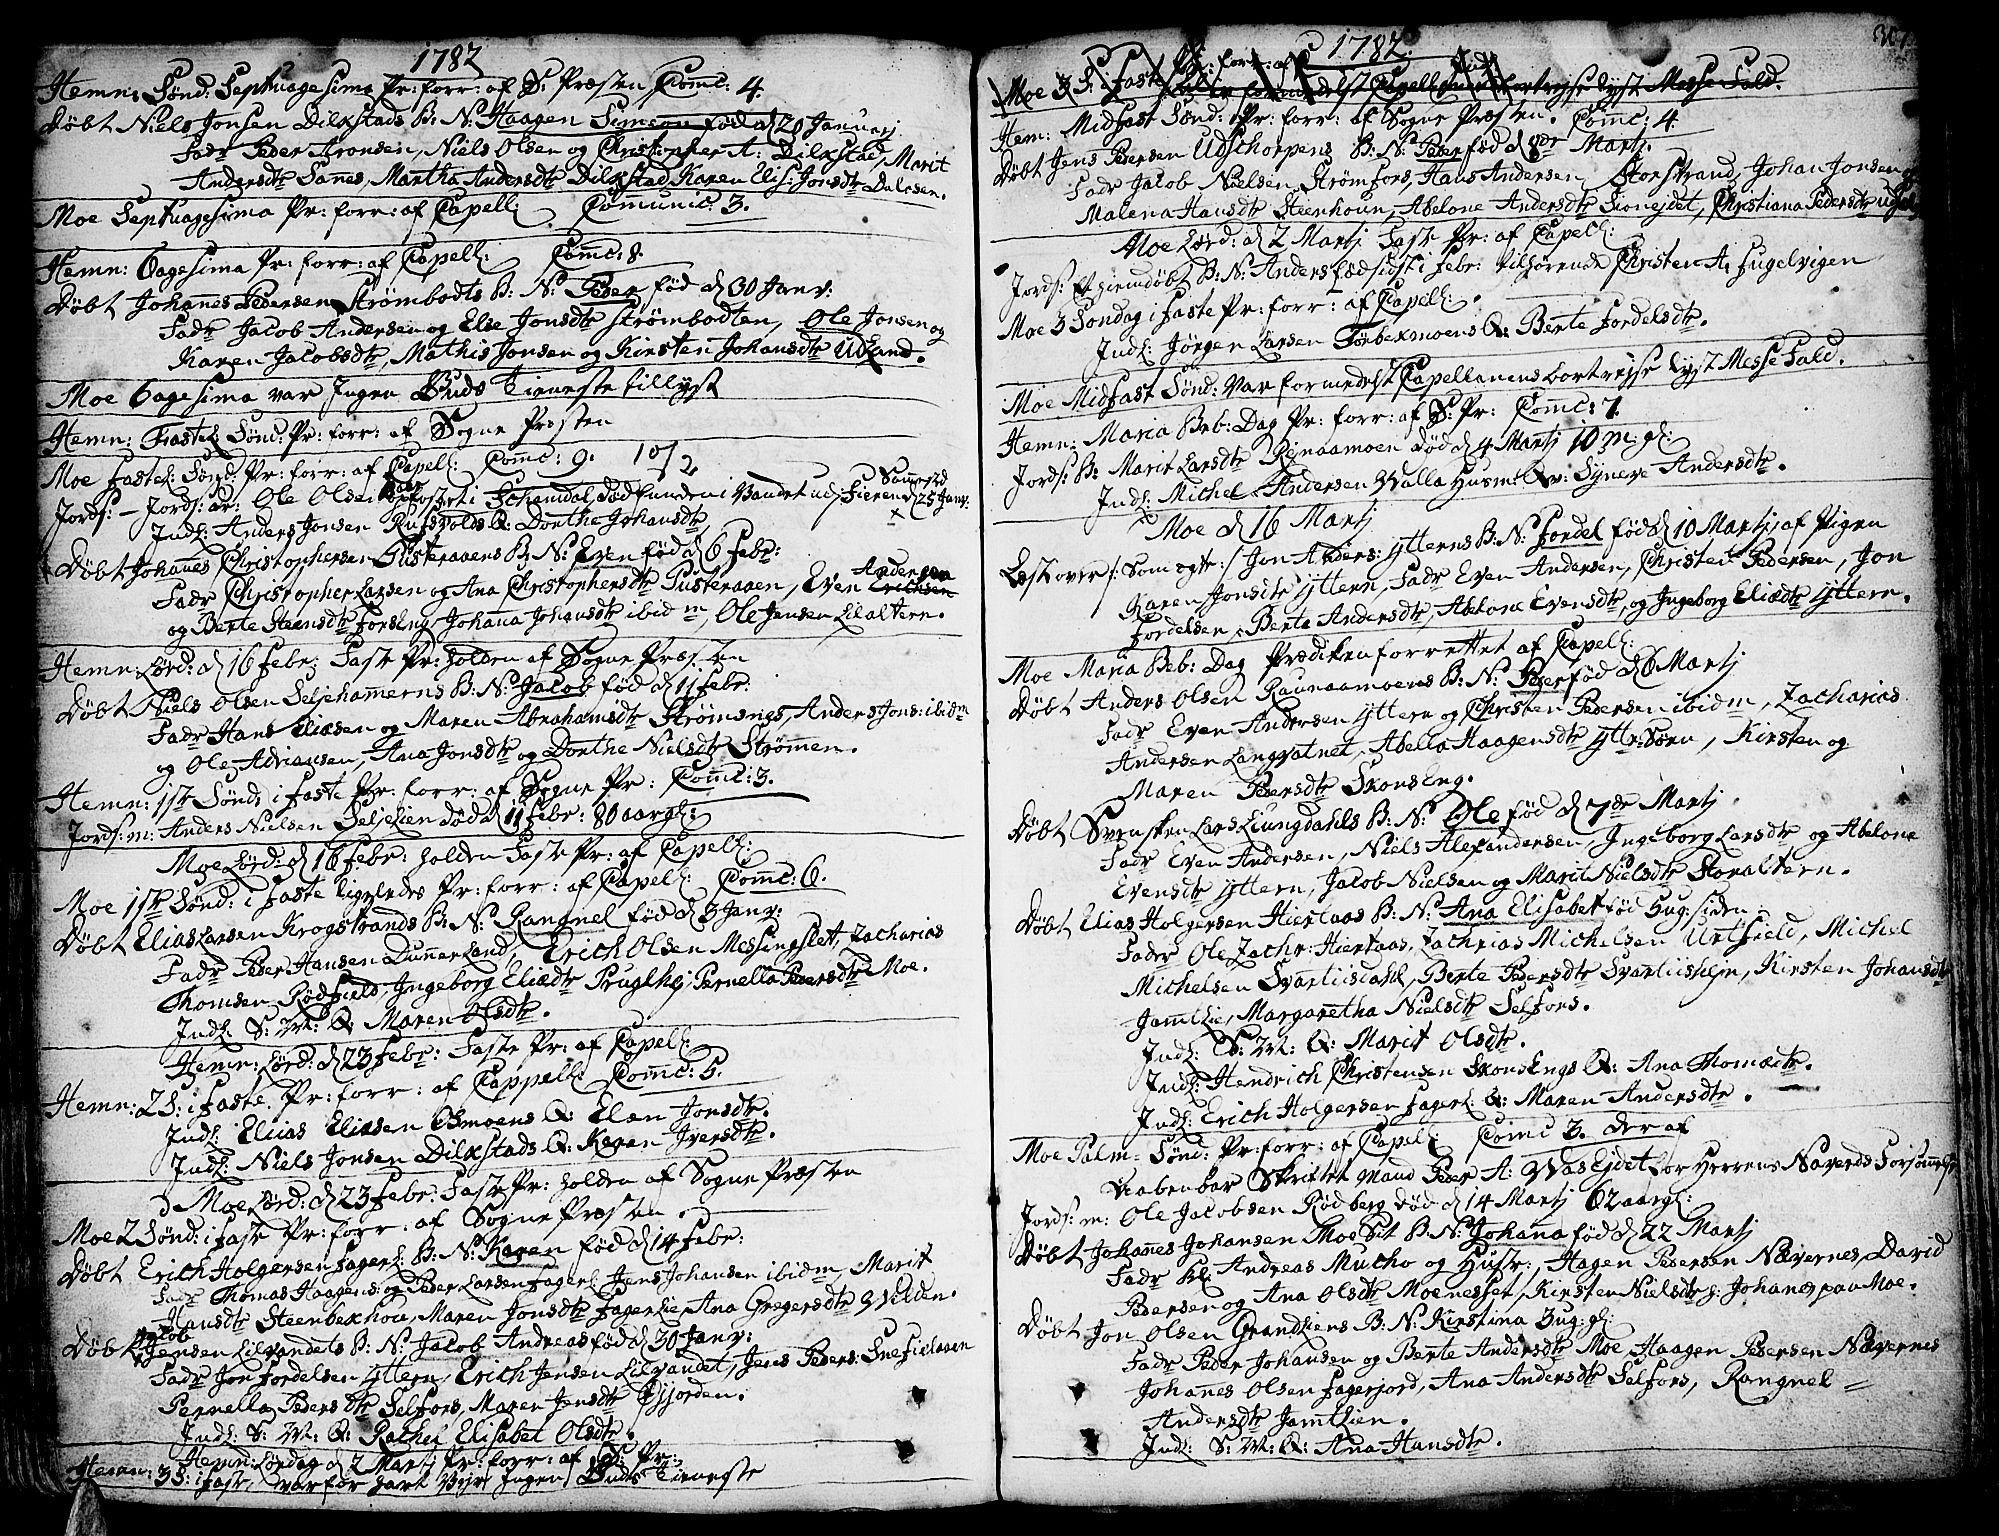 1782
Hemn: Sønd: Septuagesima Pr: forr: af S: Præsten Com̅c: 4.
Døbt Niels Jonsen Dilkstads B: N: Haagen Simeon fød d 20 Januarj
Fadr Peder Aronsen, Niels Olsen og Christopher A: Dilkstad, Marit
Andersdtr Sanes, Martha Andersdtr Dilkstad, Karen Elis: Jonsdtr Dalosen.
Moe Septuagesima Pr: forr: af Capell: Com̅unic: 3.
Hemn: 6agesima Pr: forr: af Capell: Com̅c: 8.
Døbt Johan̅es Pedersen Strømbodts B: N: Peder, fød d 30 Janv:
Fadr Jacob Andersen og Else Jonsdtr Strømbodten, Ole Jonsen og
Karen Jacobsdtr, Mathis Jonsen og Kirsten Johansdtr Udland.
Moe 6agesima var Ingen Guds Tieneste tillyst
Hemn: Fastel: Sønd: Pr: forr: af Sogne Præsten
Moe Fastel: Sønd: Pr: forr: af Capell: Com̅c: 9.
Jords: Ole Olsen opfostret i død funden i Vandet ud d 25 Janv:
Indl: Anders Jonsen Rufsvolds Q: Dorthe Johansdtr
Døbt Johan̅es Christophersen Pusteraaens B: N: Even fød d 6 Febr:
Fadr Christopher Larsen og Ana Christophersdtr Pusteraaen, Even Andersen
og Berte Steensdtr Forsling, Johana Johansdtr ibidm, Ole Jensen Lilaltern.
Hemn: Lørd: d 16 Febr: Faste Pr: holden af Sogne Præsten
Døbt Niels Olsen Seljeham̅erns B: N: Jacob fød d 11 Febr:
Fadr Hans Eliæsen og Maren Abrahamsdtr Strømsnes, Anders Jons: ibidm
og Ole Adriansen, Ana Jonsdtr og Dorthe Nielsdtr Strøm̅en.
Hemn: 1ste Sønd: i Faste Pr: forr: af Sogne Pr: Com̅c: 3.
Jords: m: Anders Nielsen Seljelien død d 11 Febr: 80 aar gl:
Moe Lørd: d 16 Febr: holden Faste Pr: af Capell:
Moe 1ste Sønd: i Faste ligeledes Pr: forr: af Capell: Com̅c: 6.
Døbt Elias Larsen Krogstrands B: N: Rangnel fød d 3 Janv:
Fadr Peder Hansen Dun̅erland, Erich Olsen Messingslett, Zacharias
Thomsen Rødfield, Ingeborg Eliædtr Pruglhej, Pernella Pedersdtr Moe.
Indl: S: M: Q: Maren Olsdtr.
Hemn: Lørd: d 23 Febr: Faste Pr: af Capell:
Hemn: 2 S: i Faste Pr: forr: af Cappell: Com̅c: 5.
Indl: Elias Eliasen Osmoens Q: Elen Jonsdtr.
Indl: Niels Jonsen Dilkstads Q: Karen Iversdtr.
Moe Lørd: d 23 Febr: Faste Pr: holden af Sogne Præsten
Moe 2 Sønd: i Faste Pr: forr: af Sogne Præsten.
Døbt Erich Holgersen Fagerl: B: N: Karen fød d 14 Febr:
Fadr Thomas Haagens: og Peder Larsen Fagerl: Jens Johansen ibidm, Marit
Hansdtr Steenbekhou, Maren Jonsdtr Fagerlie, Ana Gregersdtr Vilden.
Døbt Jacob Jensen Lilvandets B: N: Jacob Andreas fød d 30 Janv:
Fadr Jon Fordelsen Yttern, Erich Jensen Lilvandet, Jens Peders: Snefielaaen
Pernella Pedersdtr Selfors, Maren Jensdtr Fjorden.
Indl: S: M: Q: Rachel Elisabet Olsdtr.
Hemn: Lørdag d 2 Martj Pr: forr: af S: Pr:
Hemn: 3 S: i Faste, var for hart Vejr Ingen Guds Tieneste
1782.
Moe 3 S: i Faste formedelst Capellanens bortrejse lyst Messe Fald.
Hem: Midfast Sønd: Pr: forr: af Sogne Præsten. Com̅c: 4.
Døbt Jens Pedersen Udschorpens B: N: Peder fød d Martj.
Fadr Jacob Nielsen Strømfors, Hans Andersen Storstrand, Johan Jonsen og
Malena Hansdtr Steenhoun, Abelone Andersdtr Sionejdet, Christiana Pedersdtr
Moe Lørd: d 2 Martj Faste Pr: af Capell:
Jords: Et hiemdøbt B: N: Anders fød sidst i Febr: tilhørende Christen A: Fugelvigen
Moe 3 Søndag i Faste Pr: forr: af Capell:
Indl: Jørgen Larsen Tørbekmoens Q: Berte Fordelsdtr.
Moe Midfast Sønd: var formedelst Capellanens bortrejse lyst Messe Fald.
Hemn: Maria Beb: Dag Pr: forr: af S: Pr: Com̅c: 7.
Jords: B: Marit Larsdtr Renaamoen død d 4 Martj 10 m: gl:
Indl: Michel Andersen Valla Husm: Qv: Syneve Andersdtr.
Moe d 16 Martj
Læst over /: Som ægte :/ Jon Anders: Ytterns B: N: Fordel fød d 10 Martj af Pigen
Karen Jonsdtr Yttern, Fadr Even Andersen, Christen Pedersen, Jon
Fordelsen, Berte Andersdtr, Abelone Evensdtr, og Ingeborg Eliædtr Yttern.
Moe Maria Beb: Dag Prædiken forrettet af Capell:
Døbt Anders Olsen Raunaamoens B: N: Peder fød d 6 Martj
Fadr Even Andersen Yttern og Christen Pedersen ibidm, Zacharias
Andersen Langvatnet, Abella Haagensdtr Yttr: Søren, Kirsten og
Maren Pedersdtr SkonsEng.
Døbt Svensken Lars Liungdahls B: N: Ole fød d 7de Martj.
Fadr Even Andersen, Niels Alexandersen, Ingeborg Larsdtr og Abelone
Evensdtr Yttern, Jacob Nielsen og Marit Nielsdtr Storaltern.
Døbt Elias Holgersen Hiertaas B: N: Ana Elisabet fød 3 ug: siden.
Fadr Ole Zachr: Hiertaas, Zachrias Michelsen Urtfield, Michel
Michelsen Svartiisdahl, Berte Pedersdtr Svartiishejn, Kirsten Johansdtr
Jamtlie, Margaretha Nielsdtr Selfors.
Indl: S: M: Q: Marit Olsdtr.
Indl: Hendrich Christensen SkonsEngs Q: Ana Thomædtr.
Indl: Erich Holgersen Fagerl: Q: Maren Andersdtr.
Moe Palm-Sønd: Pr: forr: af Capell: Com̅c 3. Der af
Aabenbar Skriftet Mand Peder A: VasEjdet for Herrens Naverds Forsøm̅else
Jords: m: Ole Jacobsen Rødberg død d 14 Martj 62 aar gl:
Døbt Johan̅es Johansen Moe Sit B: N: Johan̅a fød d 22 Martj
Fadr Kl: Andreas Mucho og Hustr:, Hagen Pedersen Nævernes, David
Pedersen og Ana Olsdtr Moenesset, Kirsten Nielsdtr j: Johan̅es paa Moe.
Døbt Jon Olsen Grandliens B: N: Kirstina 3 ug: gl:
Fadr Peder Johansen og Berte Andersdtr Moe, Haagen Pedersen Nævernes
Johan̅es Olsen Fagerjord, Ana Andersdtr Selfors, Rangnel
Andersdtr Jamtlien.
Indl: S: M: Q: Ana Hansdtr.